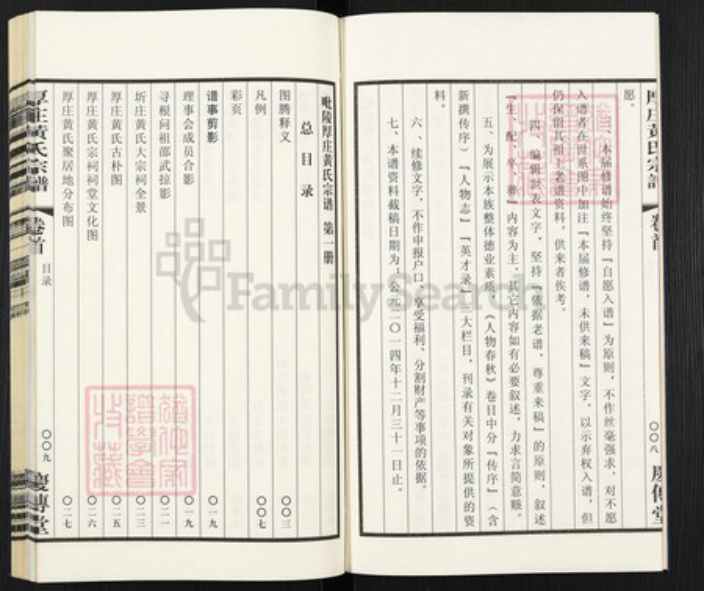 厚庄黄氏宗谱 卷首 〇〇八 庆传堂
愿。
三、本届修谱始终坚持『自愿入谱』为原则，不作丝毫强求，对不愿
入谱者在世系图中加注『本届修谱，未供来稿』文字，以示弃权入谱，但
仍保留其祖上老谱资料，供来者俟考。
四、编辑制表文字，坚持『依据老谱，尊重来稿』的原则，叙述
『生、配、卒、葬』内容为主，其它内容如有必要叙述，力求言简意赅。
五、为展示本族整体德业素质，《人物春秋》卷目中分『传序』（含
新撰传序）『人物志』『英才录』三大栏目，刊录有关对象所提供的资
料。
六、续修文字，不作申报户口，享受福利、分割财产等事项的依据。
七、本谱资料截稿日期为：公元二〇一四年十二月三十一日止。
毗陵厚庄黄氏宗谱 第一册
总目录
图腾释义 〇〇三
凡例 〇〇七
彩页
谱事剪影 〇一九
理事会成员合影 〇一九
寻根问祖邵武掠影 〇二一
圻庄黄氏大宗祠全景 〇二三
厚庄黄氏古朴图 〇二五
厚庄黄氏宗祠祠堂文化图 〇二六
厚庄黄氏聚居地分布图 〇二七
厚庄黄氏宗谱 卷首 目录 〇〇九 庆传堂
FamilySearch
谱学会
收藏